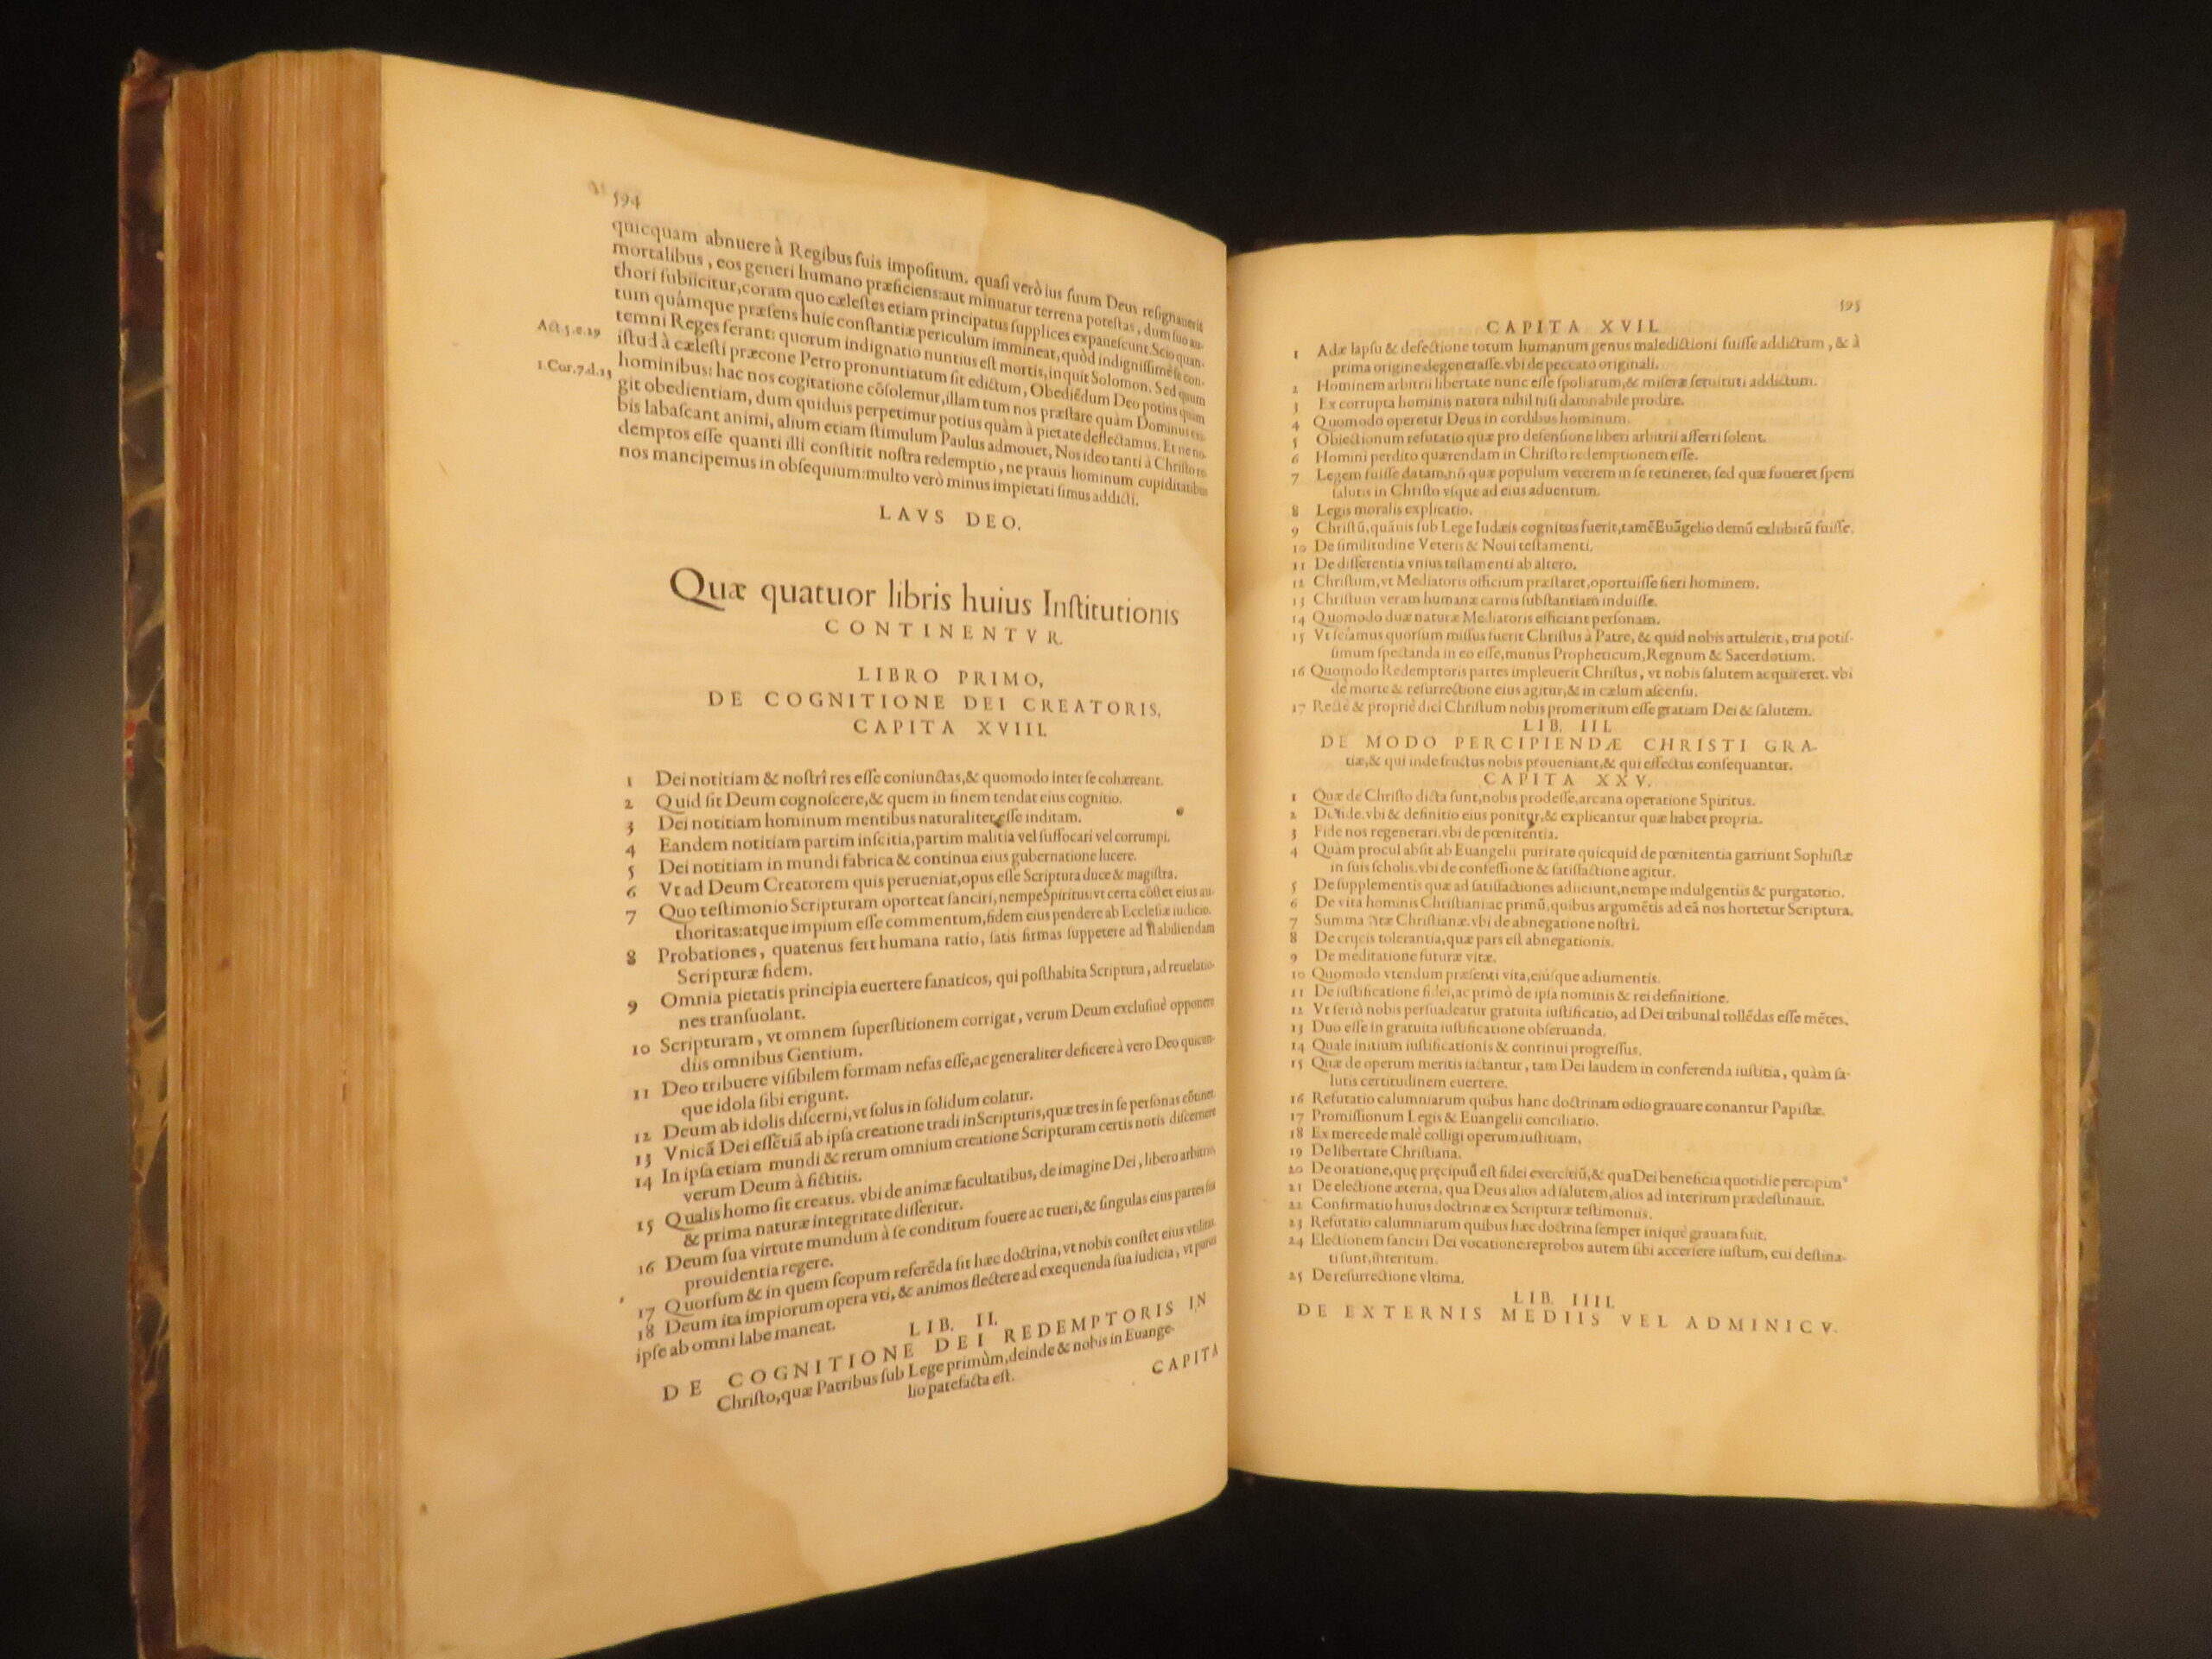 594
quicquam abnuere à Regibus ſuis impoſitum. quaſi verò ius ſuum Deus reſignauerit
mortalibus, eos generi humano præficiens: aut minuatur terrena poteſtas, dum ſuo au-
thori ſubiicitur, coram quo cæleſtes etiam principatus ſupplices expaueſcunt. Scio quan-
tum quámque præſens huic conſtantiæ periculum immineat, quòd indigniſſimè ſe con-
temni Reges ferant: quorum indignatio nuntius eſt mortis, inquit Solomon. Sed quum
Act. 5. e. 29
iſtud à cæleſti præcone Petro pronuntiatum ſit edictum, Obediẽdum Deo potius quàm
hominibus: hac nos cogitatione cõſolemur, illam tum nos præſtare quàm Dominus exi-
1. Cor. 7. d. 23
git obedientiam, dum quiduis perpetimur potius quàm à pietate deflectamus. Et ne no-
bis labaſcant animi, alium etiam ſtimulum Paulus admouet, Nos ideo tanti à Chriſto re-
demptos eſſe quanti illi conſtitit noſtra redemptio, ne prauis hominum cupiditatibus
nos mancipemus in obſequium: multo verò minus impietati ſimus addicti.
LAVS DEO.
Quæ quatuor libris huius Inſtitutionis
CONTINENTVR.
LIBRO PRIMO,
DE COGNITIONE DEI CREATORIS,
CAPITA XVIII.
1 Dei notitiam & noſtrî res eſſe coniunctas, & quomodo inter ſe cohæreant.
2 Quid ſit Deum cognoſcere, & quem in finem tendat eius cognitio.
3 Dei notitiam hominum mentibus naturaliter eſſe inditam.
4 Eandem notitiam partim inſcitia, partim malitia vel ſuffocari vel corrumpi.
5 Dei notitiam in mundi fabrica & continua eius gubernatione lucere.
6 Vt ad Deum Creatorem quis perueniat, opus eſſe Scriptura duce & magiſtra.
7 Quo teſtimonio Scripturam oporteat ſanciri, nempe Spiritus: vt certa cõſtet eius au-
thoritas: atque impium eſſe commentum, fidem eius pendere ab Eccleſiæ iudicio.
8 Probationes, quatenus fert humana ratio, ſatis firmas ſuppetere ad ſtabiliendam
Scripturæ fidem.
9 Omnia pietatis principia euertere fanaticos, qui poſthabita Scriptura, ad reuelatio-
nes tranſuolant.
10 Scripturam, vt omnem ſuperſtitionem corrigat, verum Deum excluſiuè opponere
diis omnibus Gentium.
11 Deo tribuere viſibilem formam nefas eſſe, ac generaliter deficere à vero Deo quicun-
que idola ſibi erigunt.
12 Deum ab idolis diſcerni, vt ſolus in ſolidum colatur.
13 Vnicã Dei eſſẽtiã ab ipſa creatione tradi in Scripturis, quæ tres in ſe perſonas cõtinet
14 In ipſa etiam mundi & rerum omnium creatione Scripturam certis notis diſcernere
verum Deum à fictitiis.
15 Qualis homo ſit creatus. vbi de animæ facultatibus, de imagine Dei, libero arbitrio,
& prima naturæ integritate diſſeritur.
16 Deum ſua virtute mundum à ſe conditum fouere ac tueri, & ſingulas eius partes ſua
prouidentia regere.
17 Quorſum & in quem ſcopum referẽda ſit hæc doctrina, vt nobis conſtet eius vtilitas.
18 Deum ita impiorum opera vti, & animos flectere ad exequenda ſua iudicia, vt purus
ipſe ab omni labe maneat.
LIB. II.
DE COGNITIONE DEI REDEMPTORIS IN
Chriſto, quæ Patribus ſub Lege primùm, deinde & nobis in Euange-
lio patefacta eſt.
CAPITA
595
CAPITA XVII.
1 Adæ lapſu & defectione totum humanum genus maledictioni fuiſſe addictum, & à
prima origine degeneraſſe. vbi de peccato originali.
2 Hominem arbitrii libertate nunc eſſe ſpoliatum, & miſeræ ſeruituti addictum.
3 Ex corrupta hominis natura nihil niſi damnabile prodire.
4 Quomodo operetur Deus in cordibus hominum.
5 Obiectionum refutatio quæ pro defenſione liberi arbitrii afferri ſolent.
6 Homini perdito quærendam in Chriſto redemptionem eſſe.
7 Legem fuiſſe datam, nõ quæ populum veterem in ſe retineret, ſed quæ foueret ſpem
ſalutis in Chriſto vſque ad eius aduentum.
8 Legis moralis explicatio.
9 Chriſtũ, quãuis ſub Lege Iudæis cognitus fuerit, tamẽ Euãgelio demũ exhibitũ fuiſſe.
10 De ſimilitudine Veteris & Noui teſtamenti.
11 De differentia vnius teſtamenti ab altero.
12 Chriſtum, vt Mediatoris officium præſtaret, oportuiſſe fieri hominem.
13 Chriſtum veram humanæ carnis ſubſtantiam induiſſe.
14 Quomodo duæ naturæ Mediatoris efficiant perſonam.
15 Vt ſciamus quorſum miſſus fuerit Chriſtus à Patre, & quid nobis artulerit, tria potiſ-
ſimum ſpectanda in eo eſſe, munus Propheticum, Regnum & Sacerdotium.
16 Quomodo Redemptoris partes impleuerit Chriſtus, vt nobis ſalutem acquireret. vbi
de morte & reſurrectione eius agitur, & in cælum aſcenſu.
17 Rectè & propriè dici Chriſtum nobis promeritum eſſe gratiam Dei & ſalutem.
LIB. III.
DE MODO PERCIPIENDÆ CHRISTI GRA-
tiæ, & qui inde fructus nobis proueniant, & qui effectus conſequantur.
CAPITA XXV.
1 Quæ de Chriſto dicta ſunt, nobis prodeſſe, arcana operatione Spiritus.
2 De fide. vbi & definitio eius ponitur, & explicantur quæ habet propria.
3 Fide nos regenerari. vbi de pœnitentia.
4 Quàm procul abſit ab Euangelii puritate quicquid de pœnitentia garriunt Sophiſtæ
in ſuis ſcholis. vbi de confeſſione & ſatiſfactione agitur.
5 De ſupplementis quæ ad ſatiſfactiones adiiciunt, nempe indulgentiis & purgatorio.
6 De vita hominis Chriſtiani: ac primũ, quibus argumẽtis ad eã nos hortetur Scriptura.
7 Summa vitæ Chriſtianæ. vbi de abnegatione noſtri.
8 De crucis tolerantia, quæ pars eſt abnegationis.
9 De meditatione futuræ vitæ.
10 Quomodo vtendum præſenti vita, eiúſque adiumentis.
11 De iuſtificatione fidei, ac primò de ipſa nominis & rei definitione.
12 Vt ſeriò nobis perſuadeatur gratuita iuſtificatio, ad Dei tribunal tollẽdas eſſe mẽtes.
13 Duo eſſe in gratuita iuſtificatione obſeruanda.
14 Quale initium iuſtificationis & continui progreſſus.
15 Quæ de operum meritis iactantur, tam Dei laudem in conferenda iuſtitia, quàm ſa-
lutis certitudinem euertere.
16 Refutatio calumniarum quibus hanc doctrinam odio grauare conantur Papiſtæ.
17 Promiſſionum Legis & Euangelii conciliatio.
18 Ex mercede malè colligi operum iuſtitiam.
19 De libertate Chriſtiana.
20 De oratione, quę pręcipuũ eſt fidei exercitiũ, & qua Dei beneficia quotidie percipimꝰ
21 De electione æterna, qua Deus alios ad ſalutem, alios ad interitum prædeſtinauit.
22 Confirmatio huius doctrinæ ex Scripturæ teſtimoniis.
23 Refutatio calumniarum quibus hæc doctrina ſemper iniquè grauata fuit.
24 Electionem ſanciri Dei vocatione: reprobos autem ſibi accerſere iuſtum, cui deſtina-
ti ſunt, interitum.
25 De reſurrectione vltima.
LIB. IIII.
DE EXTERNIS MEDIIS VEL ADMINICV-